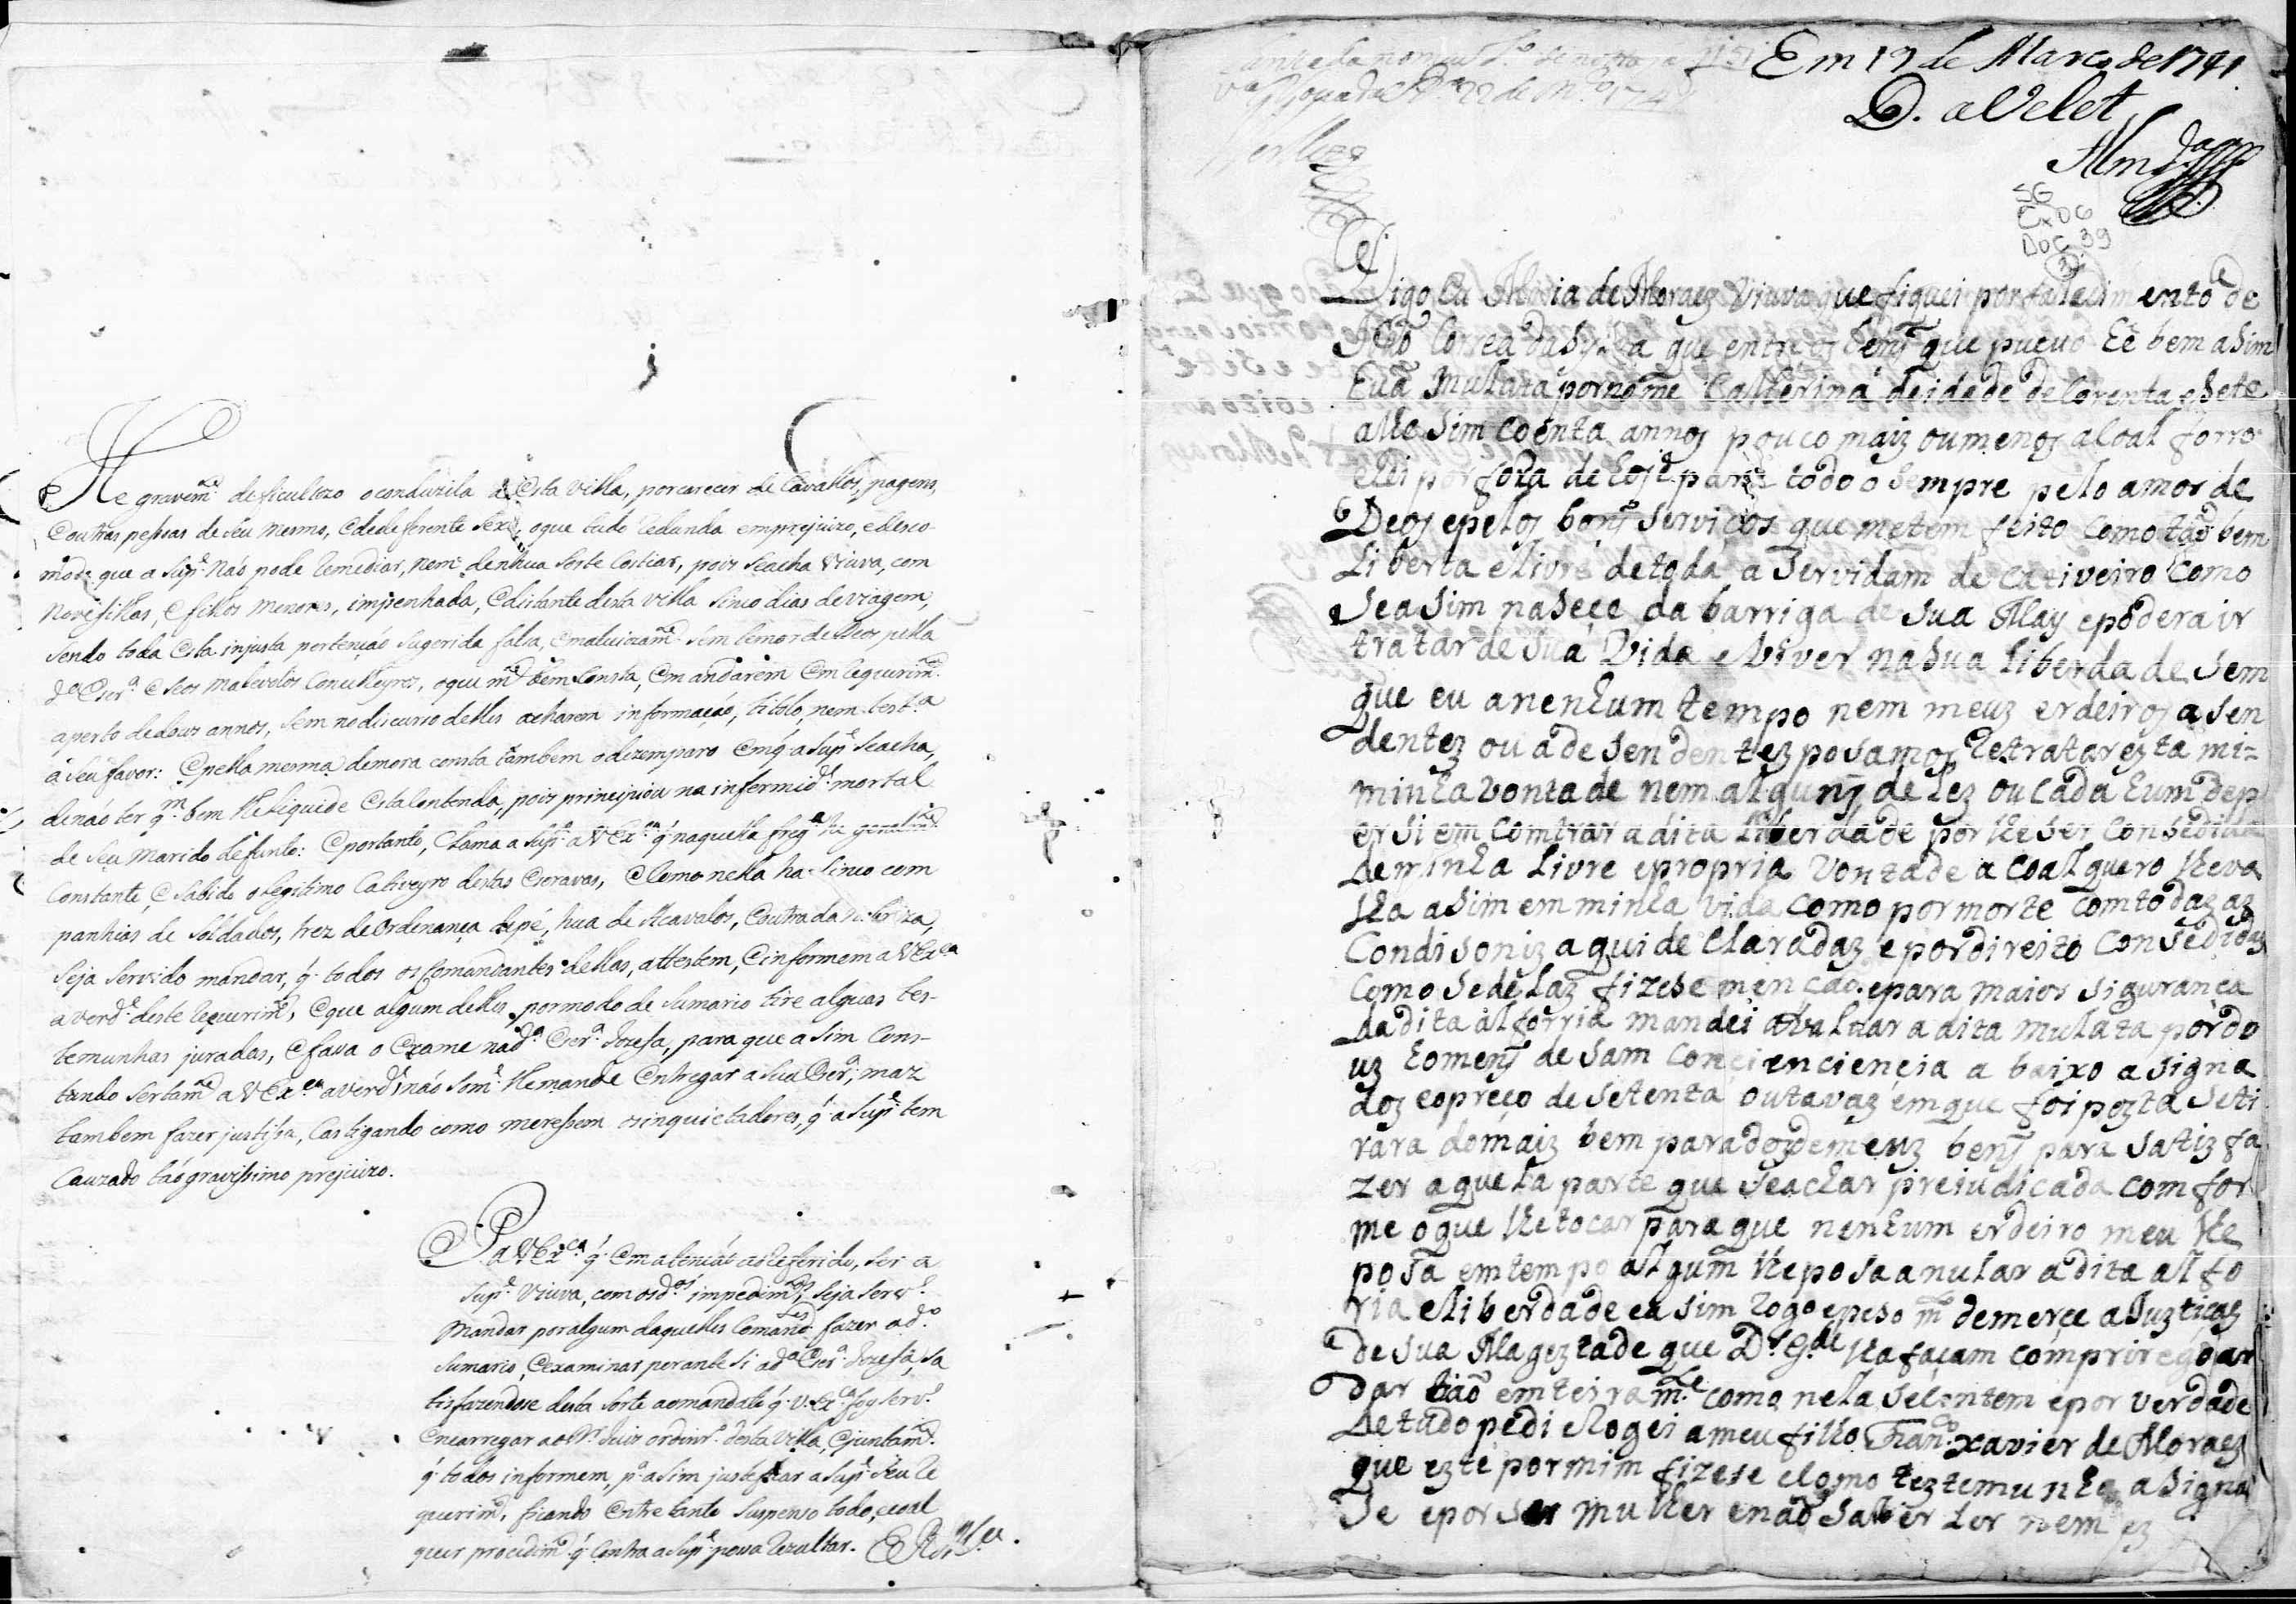 He gravem.te deficultozo o conduzila a esta villa, por carecer de Cavallos, pagens,
e outras pessoas de seu mesmo, e de deferente sexo, o que tudo redunda em prejuizo, e desco-
modo que a Sup.e não pode remediar, nem de nhua sorte Costiar, pois se acha viuva, com
nove filhas, e filhos menores, impenhada, e distante desta villa sinco dias de viagem,
sendo toda esta injusta pertenção sugerida falsa, e maliciozam.te sem temor de Deos pella
d.a escr.a e seos malevolos Conselheyros, o que m.to bem consta, em andarem em requerim.to
a perto de dous annos, sem no discurso delles acharem informação, titolo, nem test.a
a seu favor: e pella mesma demora consta tambem o dezemparo em q' a Sup.e se acha,
de não ter q.m bem lhe liquide esta contenda, pois principiou na infermid.e mortal
de seu marido defunto: e portanto, clama a Sup.e a V Ex.ca q' naquella freg.a he geralm.te
Constante, e sabido o legitimo Cativeyro destas escravas, e como nella ha sinco com
panhias de soldados, trez de ordenança de pé, hua de Acavalos, e outra da nobreza,
seja servido mandar, q' todos os Comandantes dellas, attestem, e informem a V Ex.ca
a verd.e deste requerim.to, e que algum delles por modo de sumario tire alguas tes-
temunhas juradas, e fasa o exame na d.a escr.a Jozefa, para que asim cons-
tando sertam.te a V Ex.ca a verd.e não som.te lhe mande entregar a sua escr.a; maz
tambem fazer justissa, castigando como meressem os inquietadores, q' a Sup.e tem
Cauzado tão gravissimo prejuizo.
P. a V Ex.ca q' em atenção ao referido, ser a
Sup.e viuva, com os d.os impedim.tos, seja serv.o
mandar por algum daquelles Comand.es fazer a d.o
sumario, e examinar perante si a d.a escr.a Jozefa, sa
tisfazendose desta sorte ao mandato q' V. Ex.ca foy serv.o
encarregar ao D.r Juis ordinr.o desta villa, e juntam.te
q' todos informem, p.a asim justeficar a Sup.e seu re
querim.to, ficando entretanto suspenso todo, e coal
quer procedim.to q' contra a Sup.e possa rezultar. E R M.ce
Em 17 de Março de 1741
D. a Velet
Almd.a
SG
Cx 06
Doc 39
Digo Eu Maria de Moraez Viuva que fiquei por falecimento de
João Correa da Sylva que entre os bens que pusuo hé bem asim
hua mulata por nome Catherina de idade de Corenta e sete
athe simcoenta annos pouco maiz ou menos a coal forro
e dei por forra de hoje para todo o sempre pelo amor de
Deos e pelos bons serviços que me tem feito como tão bem
Liberta e livre de toda a servidam de cativeiro como
se asim nasece da barriga de sua May e podera ir
tratar de sua vida e viver na sua liberdade sem
que eu a nenhum tempo nem meuz erdeiros asen
dentez ou adesendentez posamos retratar ezta mi=
minha vontade nem alguns delez ou cada hum de p
er si em comtrar a dita liberdade por lhe ser consedida
de minha livre e propria vontade a coal quero lhe va
lha asim em minha vida como por morte com todaz az
Condisoniz aqui declaradaz e por direito consedidaz
como se delaz fizese menção. e para maior sigurança
da dita alforria mandei avaluar a dita mulata por do
uz homens de sam conciencienсia a baixo asigna
doz e o preço de setenta outavaz em que foi pozta se ti
rara do maiz bem parado de meuz bens para satizfa
zer aquela parte que se achar preiudicada comfor
me o que lhe tocar para que nenhum erdeiro meu lhe
posa em tempo algum lhe posa anular a dita alfo
ria e liberdade e asim rogo e peso m.to de merçe a Justicaz
de sua Mageztade que D.s G.de lha façam comprir e goar
dar tão emteiram.te como nela se contem e por verdade
de tudo pedi e Rogei a meu filho Fran.co Xavier de Moraez
que ezte por mim fizese e como teztemunha asigna
se e por ser mulher e não saber ler nem ez